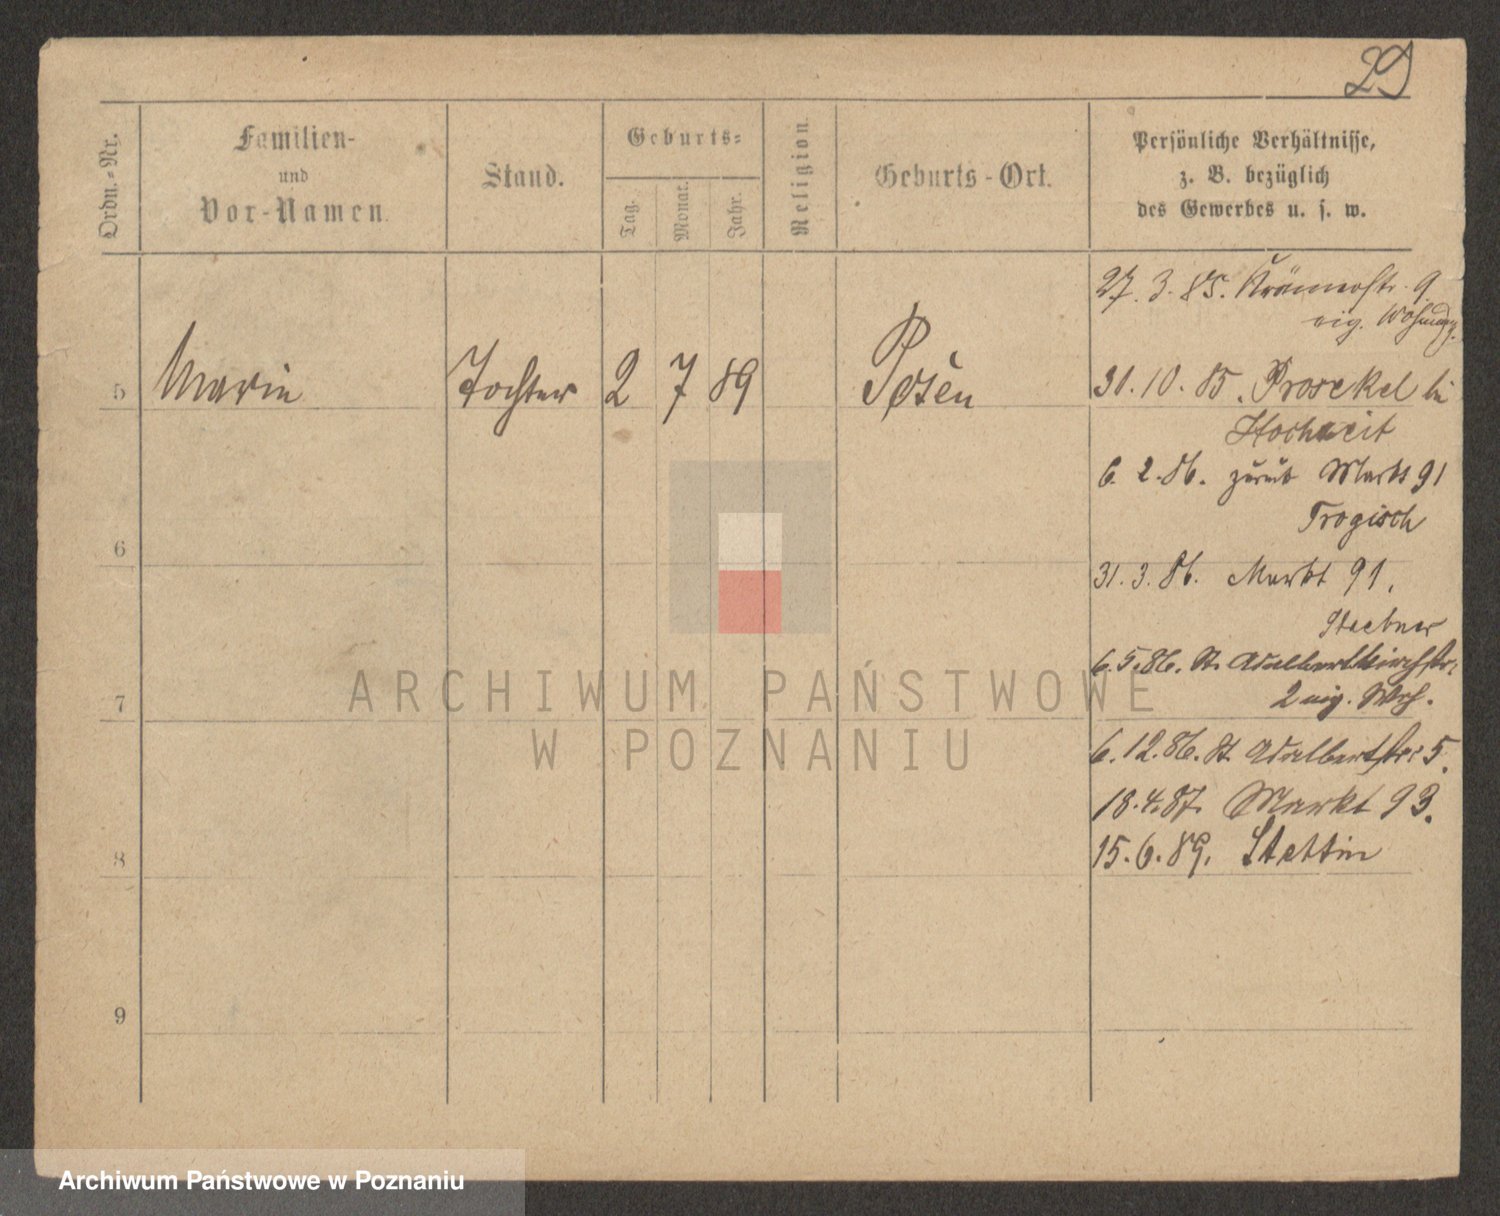 29
Ordn.-Nr.
Familien-
und
Vor-Namen.
Stand.
Geburts-
Tag.
Monat.
Jahr.
Religion
Geburts-Ort.
Persönliche Verhältnisse,
z. B. bezüglich
des Gewerbes u. s. w.
27. 3. 85. Krämerstr. 9.
eig. Wohnung.
5 Marie Tochter 2 7 89 Posen
31. 10. 85.
Hochzeit
6. 2. 86. zurück Markt 91
Trogisch
6
31. 3. 86. Markt 91.
6. 5. 86. St. Adalbertkirchstr.
2 eig. Woh.
7
6. 12. 86. St. Adalbertstr. 5.
18. 4. 87. Markt 93.
15. 6. 89. Stettin
8
9
ARCHIWUM PAŃSTWOWE
W POZNANIU
Archiwum Państwowe w Poznaniu